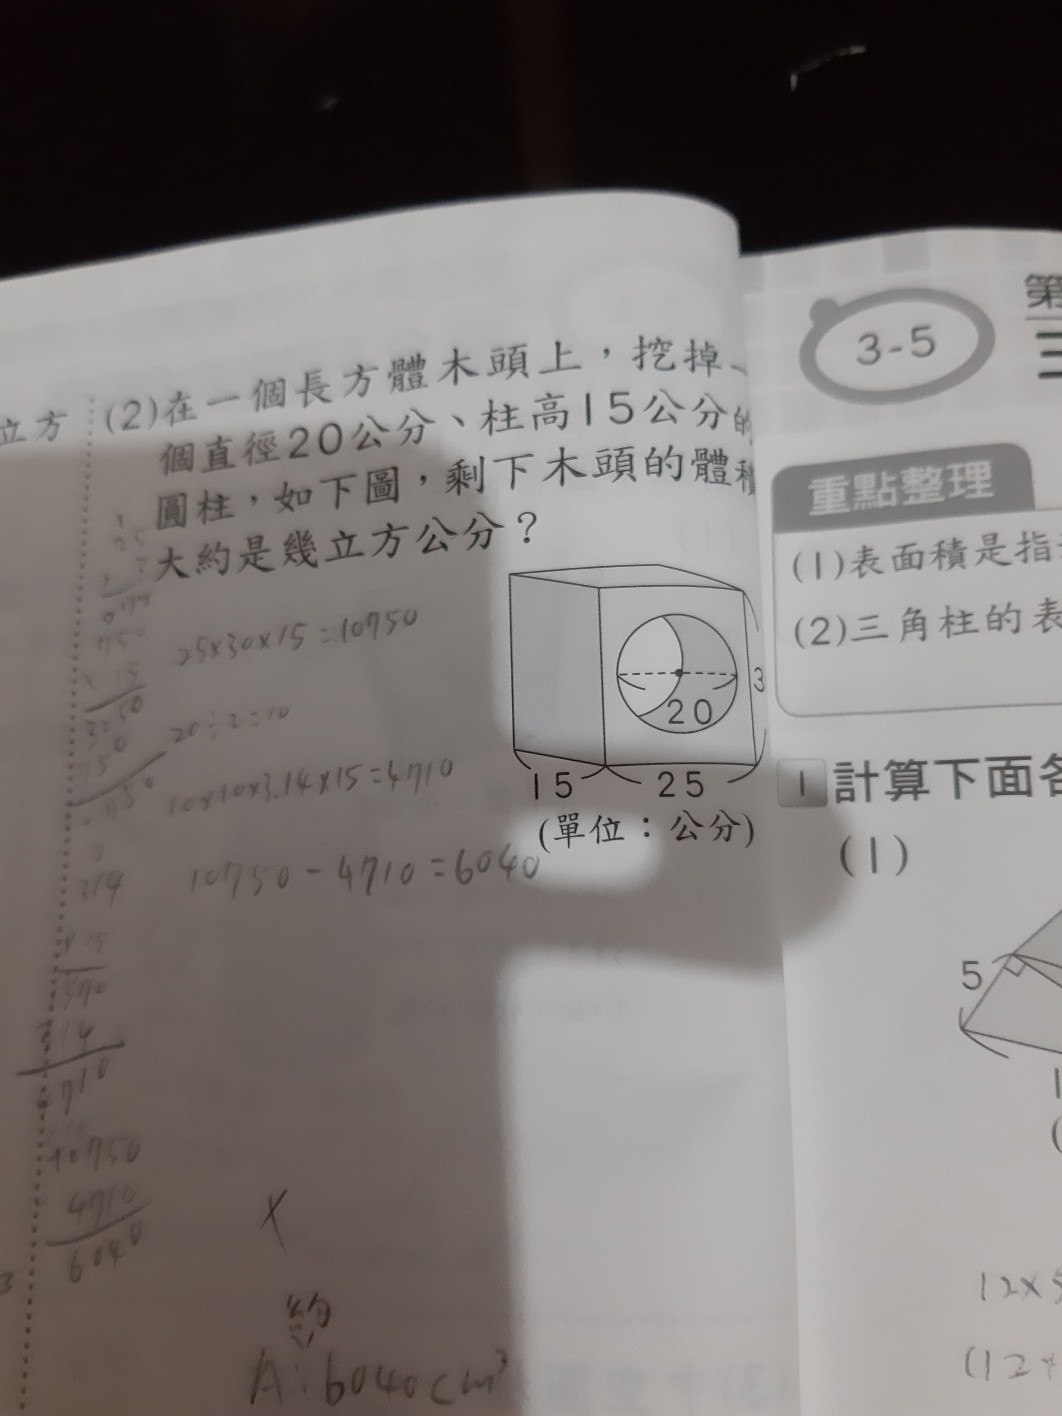 立方
(2)在一個長方體木頭上，挖掉一
個直徑20公分、柱高15公分的
圓柱，如下圖，剩下木頭的體積
大約是幾立方公分？
25×30×15=10750
20÷2=10
10×10×3.14×15=4710
10750-4710=6040
20
3
15
25
(單位：公分)
314
10750
4710
6040
約
A:6040cm³
3-5
第
重點整理
(1)表面積是指
(2)三角柱的表
1 計算下面各
(1)
5
1
12×5
(12×